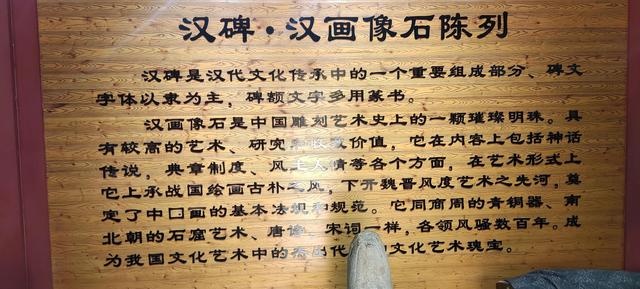 汉碑·汉画像石陈列
汉碑是汉代文化传承中的一个重要组成部分、碑文
字体以隶为主，碑额文字多用篆书。
汉画像石是中国雕刻艺术史上的一颗璀璨明珠。具
有较高的艺术、研究和收藏价值，它在内容上包括神话
传说，典章制度、风土人情等各个方面，在艺术形式上
它上承战国绘画古朴之风，下开魏晋风度艺术之先河，奠
定了中□画的基本法规和规范。它同商周的青铜器、南
北朝的石窟艺术、唐诗、宋词一样，各领风骚数百年。成
为我国文化艺术中的杰出代 文化艺术瑰宝。